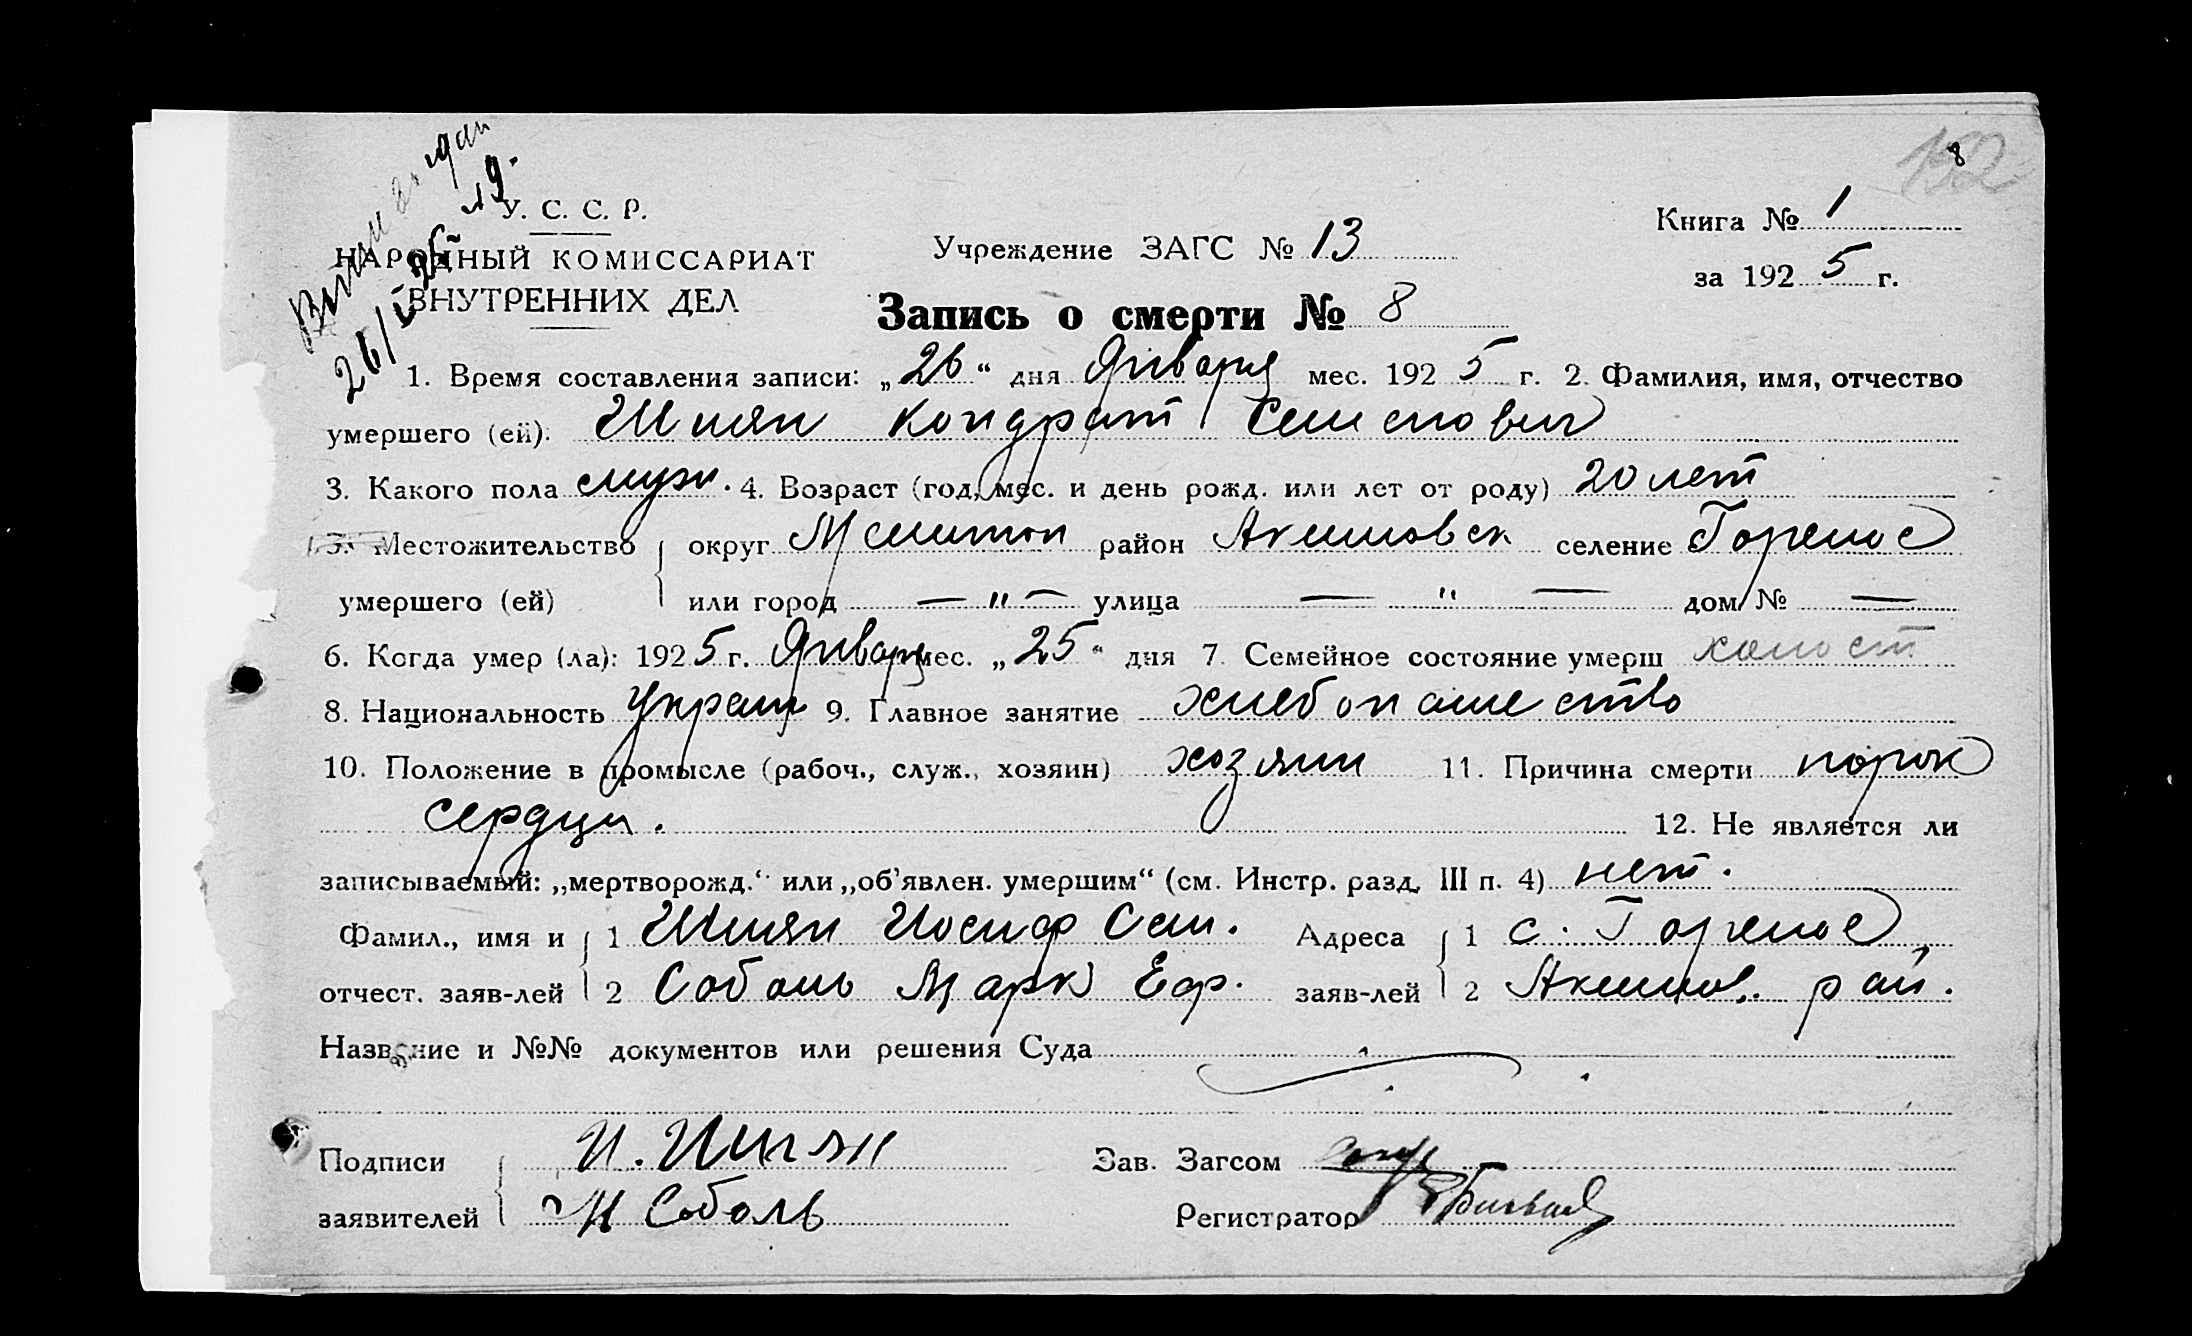 152
8
У. С. С. Р.
НАРОДНЫЙ КОМИССАРИАТ
ВНУТРЕННИХ ДЕЛ
Учреждение ЗАГС № 13
Книга № 1
за 1925 г.
Запись о смерти № 8
1. Время составления записи: „26“ дня Января мес. 1925 г. 2. Фамилия, имя, отчество
умершего (ей): Шиян Кондрат Семенович
3. Какого пола муж. 4. Возраст (год, мес. и день рожд. или лет от роду) 20 лет
5. Местожительство округ Мелитоп район Акимовск селение Горелое
умершего (ей) или город — " — улица — " — дом № —
6. Когда умер (ла): 1925 г. Января мес. „25“ дня 7. Семейное состояние умерш холост
8. Национальность украин 9. Главное занятие хлебопашество
10. Положение в промысле (рабоч., служ., хозяин) хозяин 11. Причина смерти порок
сердца. 12. Не является ли
записываемый: „мертворожд.“ или „об’явлен. умершим“ (см. Инстр. разд. III п. 4) нет.
Фамил., имя и 1 Шиян Иосиф Сем. Адреса 1 с. Горелое,
отчест. заяв-лей 2 Соболь Марк Еф. заяв-лей 2 Акимов. рай.
Название и №№ документов или решения Суда
Подписи И. Шиян Зав. Загсом
заявителей М Соболь Регистратор